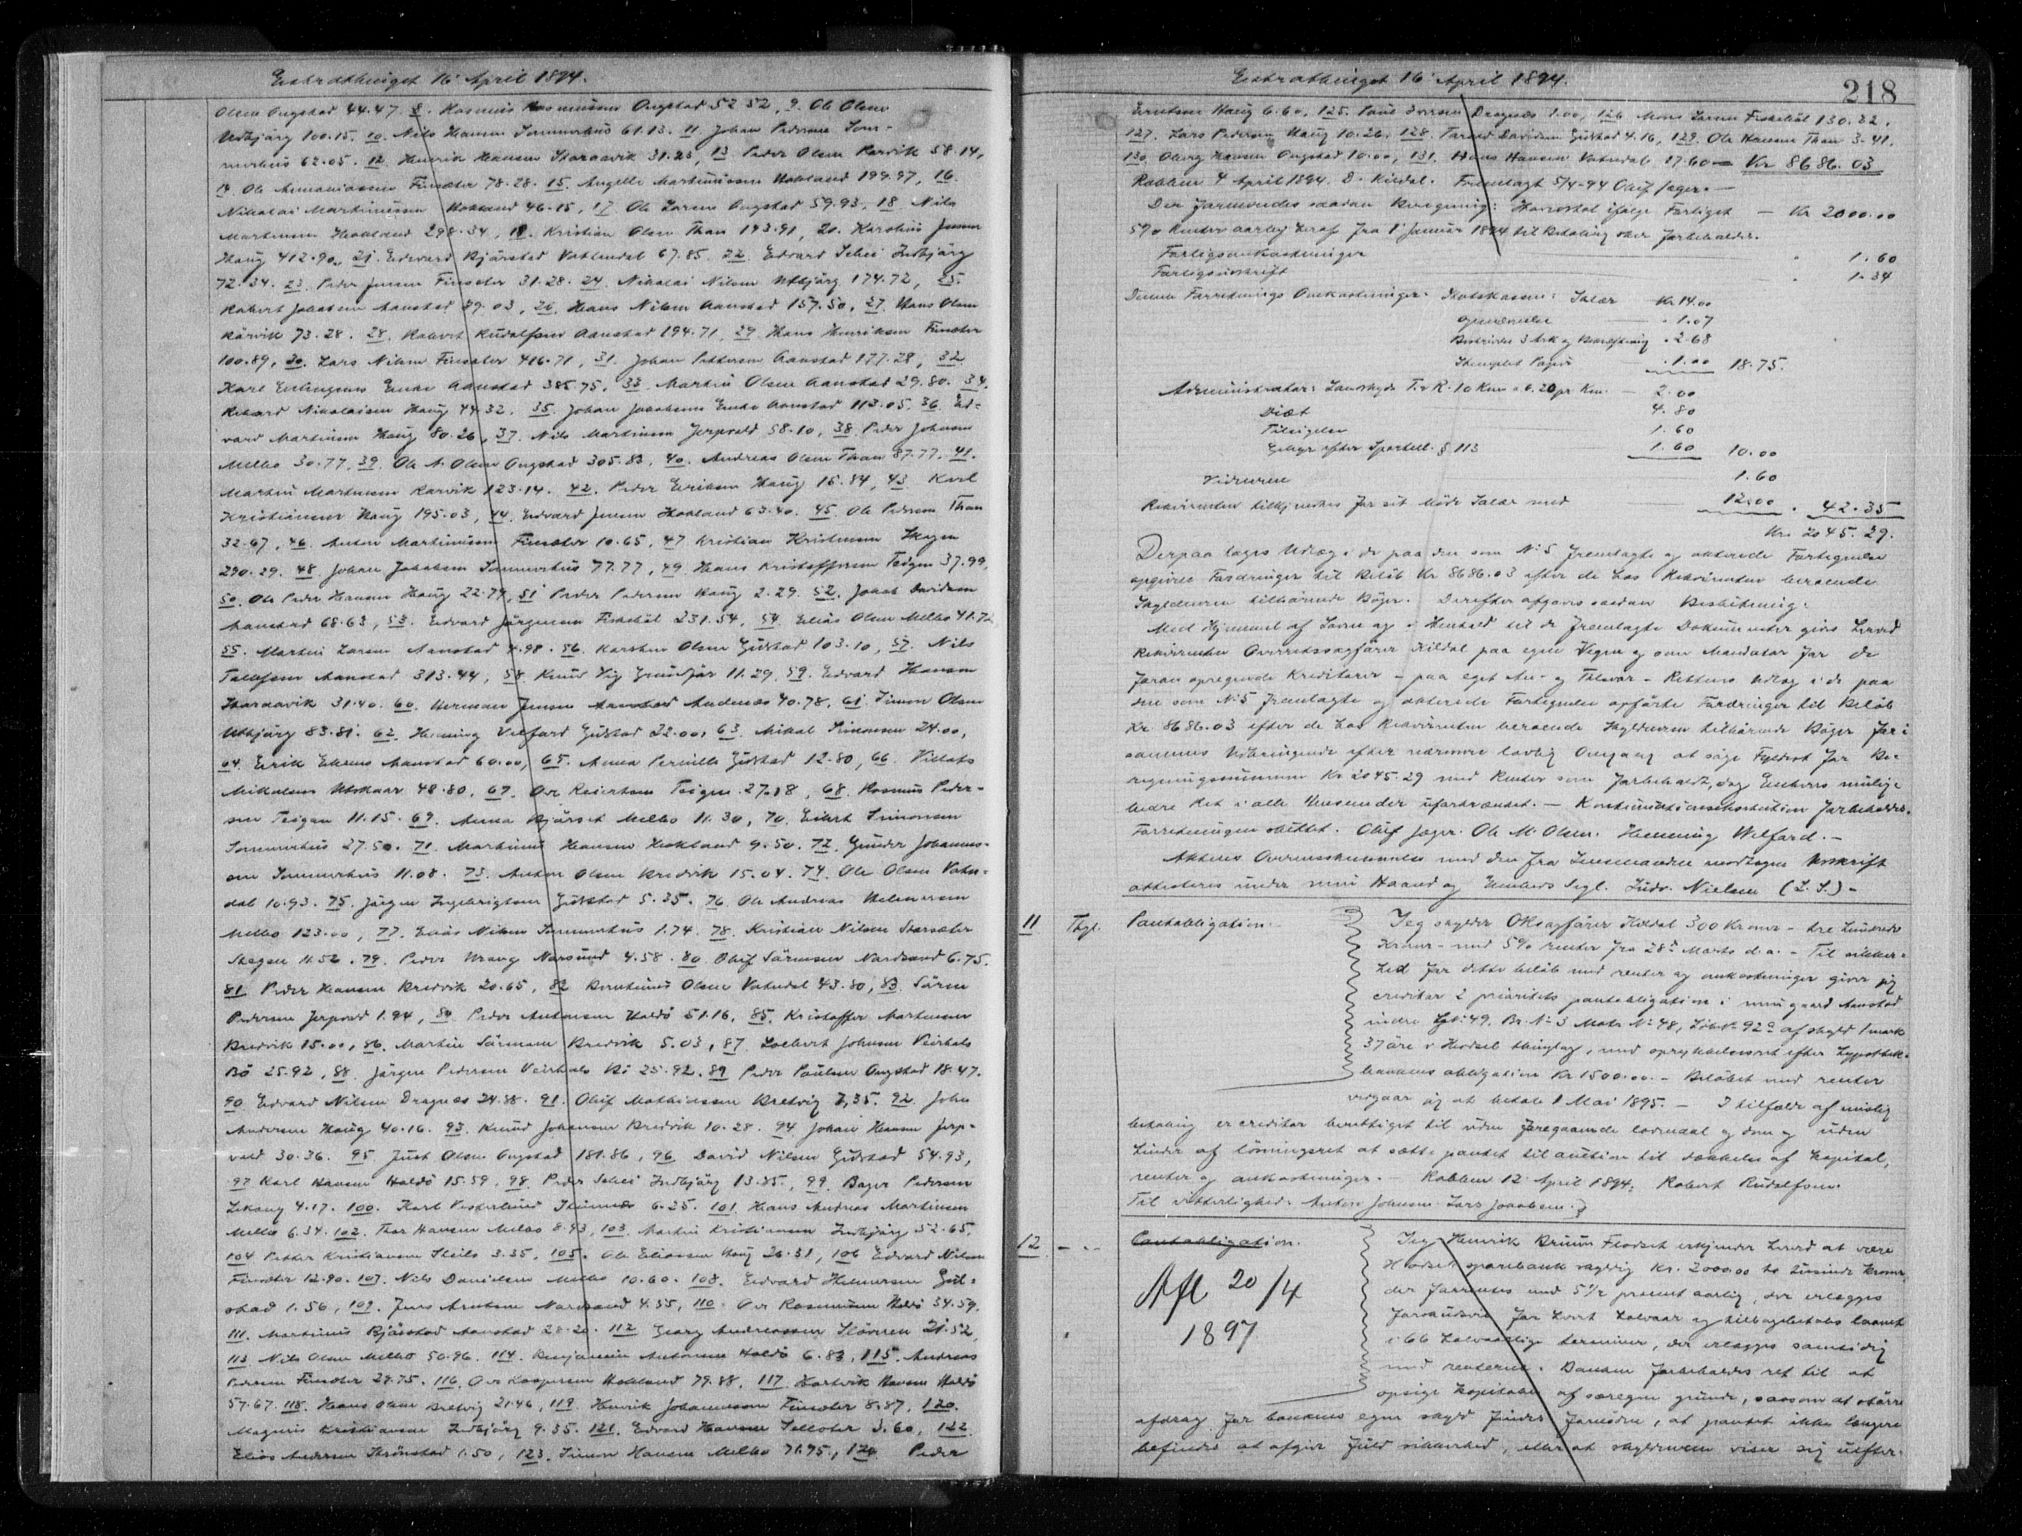 Extrathinget 16 April 1894.
Olsen Ongstad 44.47. 8. Rasmus Rasmussen Ongstad 52 52, 9. Ole Olsen
Utbjørg 100.15. 10. Nils Hansen Sommerhus 61.13. 11. Johan Pedersen Som-
merhus 62.05. 12. Henrik Hansen 31.23, 13. Peder Olsen Rørvik 58.14,
14. Ole Finsæter 78.28. 15. Angell Martinussen Hokland 194.97, 16.
Nikolai Martinussen Hokland 46.15, 17. Ole Larsen Ongstad 59.93, 18. Nils
Martinsen Hokland 298.34, 19. Kristian Olsen Than 143.91, 20. Karolius Jensen
Haug 412.90, 21. Edevard Bjørstad Vatnedal 67.85. 22. Edvard Indbjørg
72.34. 23. Peder Jensen Finsæter 31.28. 24. Nikolai Nilsen Utbjørg 174.72, 25.
Robert Jakobsen Aanstad 89.03, 26. Hans Nilsen Aanstad 157.50, 27. Hans Olsen
Rørvik 73.28. 28. Robert Rudolfsen Aanstad 194.71, 29. Hans Henriksen Finsæter
100.89, 30. Lars Nilsen Finsæter 416.71, 31. Johan Pettersen Aanstad 177.28, 32
Karl Erlingsens Enke Aanstad 385.75, 33. Martin Olsen Aanstad 29.80. 34.
Rikard Nikolaisen Haug 44.32. 35. Johan Jakobsens Enke Aanstad 113.05. 36. Ed-
vard Martinsen Haug 80.26, 37. Nils Martinsen Jerpvold 58.10, 38. Peder Johnsen
Melbo 30.77, 39. Ole N. Olsen Ongstad 305.83, 40. Andreas Olsen Than 87.77. 41.
Martin Martinsen Rørvik 123.14. 42. Peder Eriksen Haug 16.84, 43 Karl
Kristiansen Haug 195.03, 44. Edvard Jensen Hokland 63.40. 45. Ole Pedersen Than
32.67, 46. Anton Martinussen Finsæter 10.65, 47 Kristian Kristensen Skagen
290.29. 48. Johan Jakobsen Sommerhus 77.77, 49. Hans Kristoffersen Teigen 37.99,
50. Ole Peder Hansen Haug 22.79, 51 Peder Pedersen Haug 2.29. 52. Jakob Davidsen
Aanstad 68.63, 53. Edvard Jørgensen Fiskebøl 231.54, 54. Elias Olsen Melbo 41.72
55. Martin Larsen Aanstad 4.98. 56. Karsten Olsen Gulstad 103.10, 57. Nils
Tollefsen Aanstad 313.44, 58. Knud Vig Grundfør 11.29, 59. Edvard Hansen
31.40. 60. Herman Jensen Andenæs 40.78, 61. Simon Olsen
Utbjørg 83.81. 62. Henning Velfard Gulstad 22.00, 63. Mikal Simonsen 24.00,
64. Erik Aanstad 60.00, 65. Anna Pernille Gulstad 12.80, 66.
Mikalsen 48.80, 67. Ove Reiertsen Teigen 27.88, 68. Rasmus Peder-
sen Teigen 11.15. 69. Anna Melbo 11.30, 70. Eilert Simonsen
Sommerhus 27.50. 71. Martinus Hansen Hokland 9.50. 72. Gunder Johannes-
sen Sommerhus 11.08. 73. Anton Olsen Bredvik 15.04. 74. Ole Olsen Vatn-
dal 10.93. 75. Jørgen Ingebrigtsen Gulstad 5.35. 76. Ole Andreas Helmersen
Melbo 123.00, 77. Enås Nilsen Sommerhus 1.74. 78. Kristian Nilsen
Skagen 11.52. 79. Peder Narsund 4.58. 80. Oluf Sørensen Nordsand 6.75.
81 Peder Hansen Bredvik 20.65, 82 Berntinus Olsen Vatndal 43.80, 83. Søren
Pedersen Jerpvold 1.94, 84. Peder Antonsen Haldø 51.16, 85. Kristoffer Martinsen
Bredvik 15.00, 86. Martin Sørensen Bredvik 5.03, 87. Johnsen
Bø 25.92, 88. Jørgen Pedersen Bø 25.92. 89 Peder Paulsen Ongstad 18.47.
90 Edvard Nilsen Dragnæs 24.88. 91. Oluf Mathiassen 7,35. 92. John
Andersen Haug 40.16. 93. Knud Johansen Bredvik 10.28. 94 Johan Hansen Jerp-
vold 30.36. 95 Just Olsen Ongstad 181.86, 96. David Nilsen Gulstad 54.93,
97 Karl Hansen Haldø 15.59, 98. Peder Indbjørg 13.85, 99. Pedersen
4.17. 100. Karl 6.25. 101. Hans Andreas Martinsen
Melbo 6.34. 102. Thor Hansen Melbo 8.93, 103. Martin Kristiansen Indbjørg 52.65,
104 Petter Kristiansen 3.35, 105. Ole Eliassen Haug 26.31, 106 Edvard Nilsen
Finsæter 12.90. 107. Nils Danielsen Melbo 10.60. 108. Edvard Helmersen Gul-
stad 1.56, 109. Jens Arntsen Nordsand 4.35, 110. Ove Rasmussen Haldø 34.59.
111. Martinus Bjørstad Aanstad 28.20. 112 Georg Andreassen 21.52,
113 Nils Olsen Melbo 50.96. 114. Benjamin Antonsen Haldø 6.83, 115. Andreas
Pedersen Finsæter 28.75. 116. Ove Kaspersen Hokland 79.88, 117. Hartvik Hansen Haldø
57.67. 118. Hans Olsen 21.46, 119. Henrik Johannessen Finsæter 8.87, 120.
Magnus Kristiansen Indbjørg 9.35. 121. Edvard Hansen 3.60, 122.
Elias Andersen 1.50, 123. Simon Hansen Melbo 71.95, 124 Peder
Extrathinget 16 April 1894.
218
Erntsen Haug 6.60, 125. Paul Iversen Dragnæs 1.00, 126. Mons Larsen Fiskebøl 130.32.
127. Lars Pedersen Haug 10.26, 128. Davidsen Gulstad 4.16, 129. Ole Hansen Than 3.41.
130. Hansen Ongstad 10.00, 131. Hans Hansen Vatnedal 17.60 = Kr 8686.03
Robben 4 April 1894. D. Kildal. Fremlagt 5/4-94 Oluf Jæger. —
Der formeredes saadan Beregning: Hovedstol ifølge Forliget — Kr 2000.00
5% Renter aarlig heraf fra 1 Januar 1894 til Betaling sker forbeholdes.
Forligsomkostninger 1.60
Forligsudskrift 1.34
Denne Forretnings Omkostninger. Statskassen: Salær Kr. 14.00
Gjenparter 1.07
Beskrivelse 3 Ark og Bekræftning 2.68
Stemplet Papir 1.00 18.75.
Administrator: Landskyds T. & R. 10 Km a 0.20 pr Km. 2.00
Diæt 4.80
Tilsigelse 1.60
Gebyr efter Sportell. § 113 1.60 10.00
Vidnerne 1.60
Rekvirenten tilkjendes for sit Møde Salær med 12.00 . 42.35
Kr. 2045.29.
Derpaa toges Udlæg i de paa den som No 5 fremlagte og akterede Fortegnelse
opgivne Fordringer til Beløb Kr 8686.03 efter de hos Rekvirenten beroende
Skyldneren tilhørende Bøger. Derefter afgaves saadan Beslutning:
Med Hjemmel af Loven og i Henhold til de fremlagte Dokumenter gives herved
Rekvirenten Overretssagfører Kildal paa egne Vegne og som Mandatar for de
foran opregnede Kreditorer – paa eget An- og Tilsvar – Rettens Udlæg i de paa
den som No 5 fremlagte og akterede Fortegnelse opførte Fordringer til Beløb
Kr. 8686.03 efter de hos Rekvirenten beroende Skyldneren tilhørende Bøger for i
sammes Udbringende efter nærmere lovlig Omgang at søge Fyldest for Be-
regningssummen Kr 2045.29 med Renter som forbeholdt, dog Enhvers mulige
bedre Ret i alle Henseender uforkrænket. — forbeholdes.
Forretningen sluttet. Oluf Jæger. Ole M. Olsen. Henning Welfard. —
Aktens Overensstemmelse med den fra Lensmanden modtagne Udskrift
attesteres under min Haand og Embeds Segl. Ludv. Nielsen (L.S.) —
11 Thgl. Pantobligation. Jeg skylder ORsagfører Kildal 300 Kroner – tre hundrede
Kroner – med 5% renter fra 28de Marts d.a. – Til sikker-
hed for dette beløb med renter og omkostninger giver jeg
creditor 2 prioritets pantobligation i min gaard Aanstad
indre Gno 49, Br. No 3 Matr No 48, Løbe No 92a af skyld 1 mark
37 øre i Hadsel thinglag, med oprykkelsesret efter hypothek-
bankens obligation Kr 1500.00. – Beløbet med renter
vedgaar jeg at betale 1 Mai 1895. — I tilfælde af mislig
betaling er creditor berettiget til uden foregaaende lovmaal og dom og uden
hinder af løsningsret at sætte pantet til auktion til dækkelse af kapital,
renter og omkostninger. — Robben 12 April 1894. Robert Rudolfsen.
Til vitterlighed: Anton Johnsen Lars Jacobsen.
12 – „ – Pantobligation. Jeg Henrik Bruun Flodset erkjender herved at være
Hadsel sparebank skyldig Kr. 2000.00 to tusinde kroner,
der forrentes med 5½ procent aarlig, der erlægges
forskudsvis for hvert halvaar og tilbagebetales laanet
i 66 halvaarlige terminer, der erlægges samtidig
med renterne. Banken forbeholdes ret til at
opsige kapitalen af særegne grunde, saasom at større
afdrag for bankens egen skyld findes fornøden, at pantet ikke længere
befindes at afgive fuld sikkerhed, eller at skyldneren viser sig utilfor-
Afl 20/4
1897